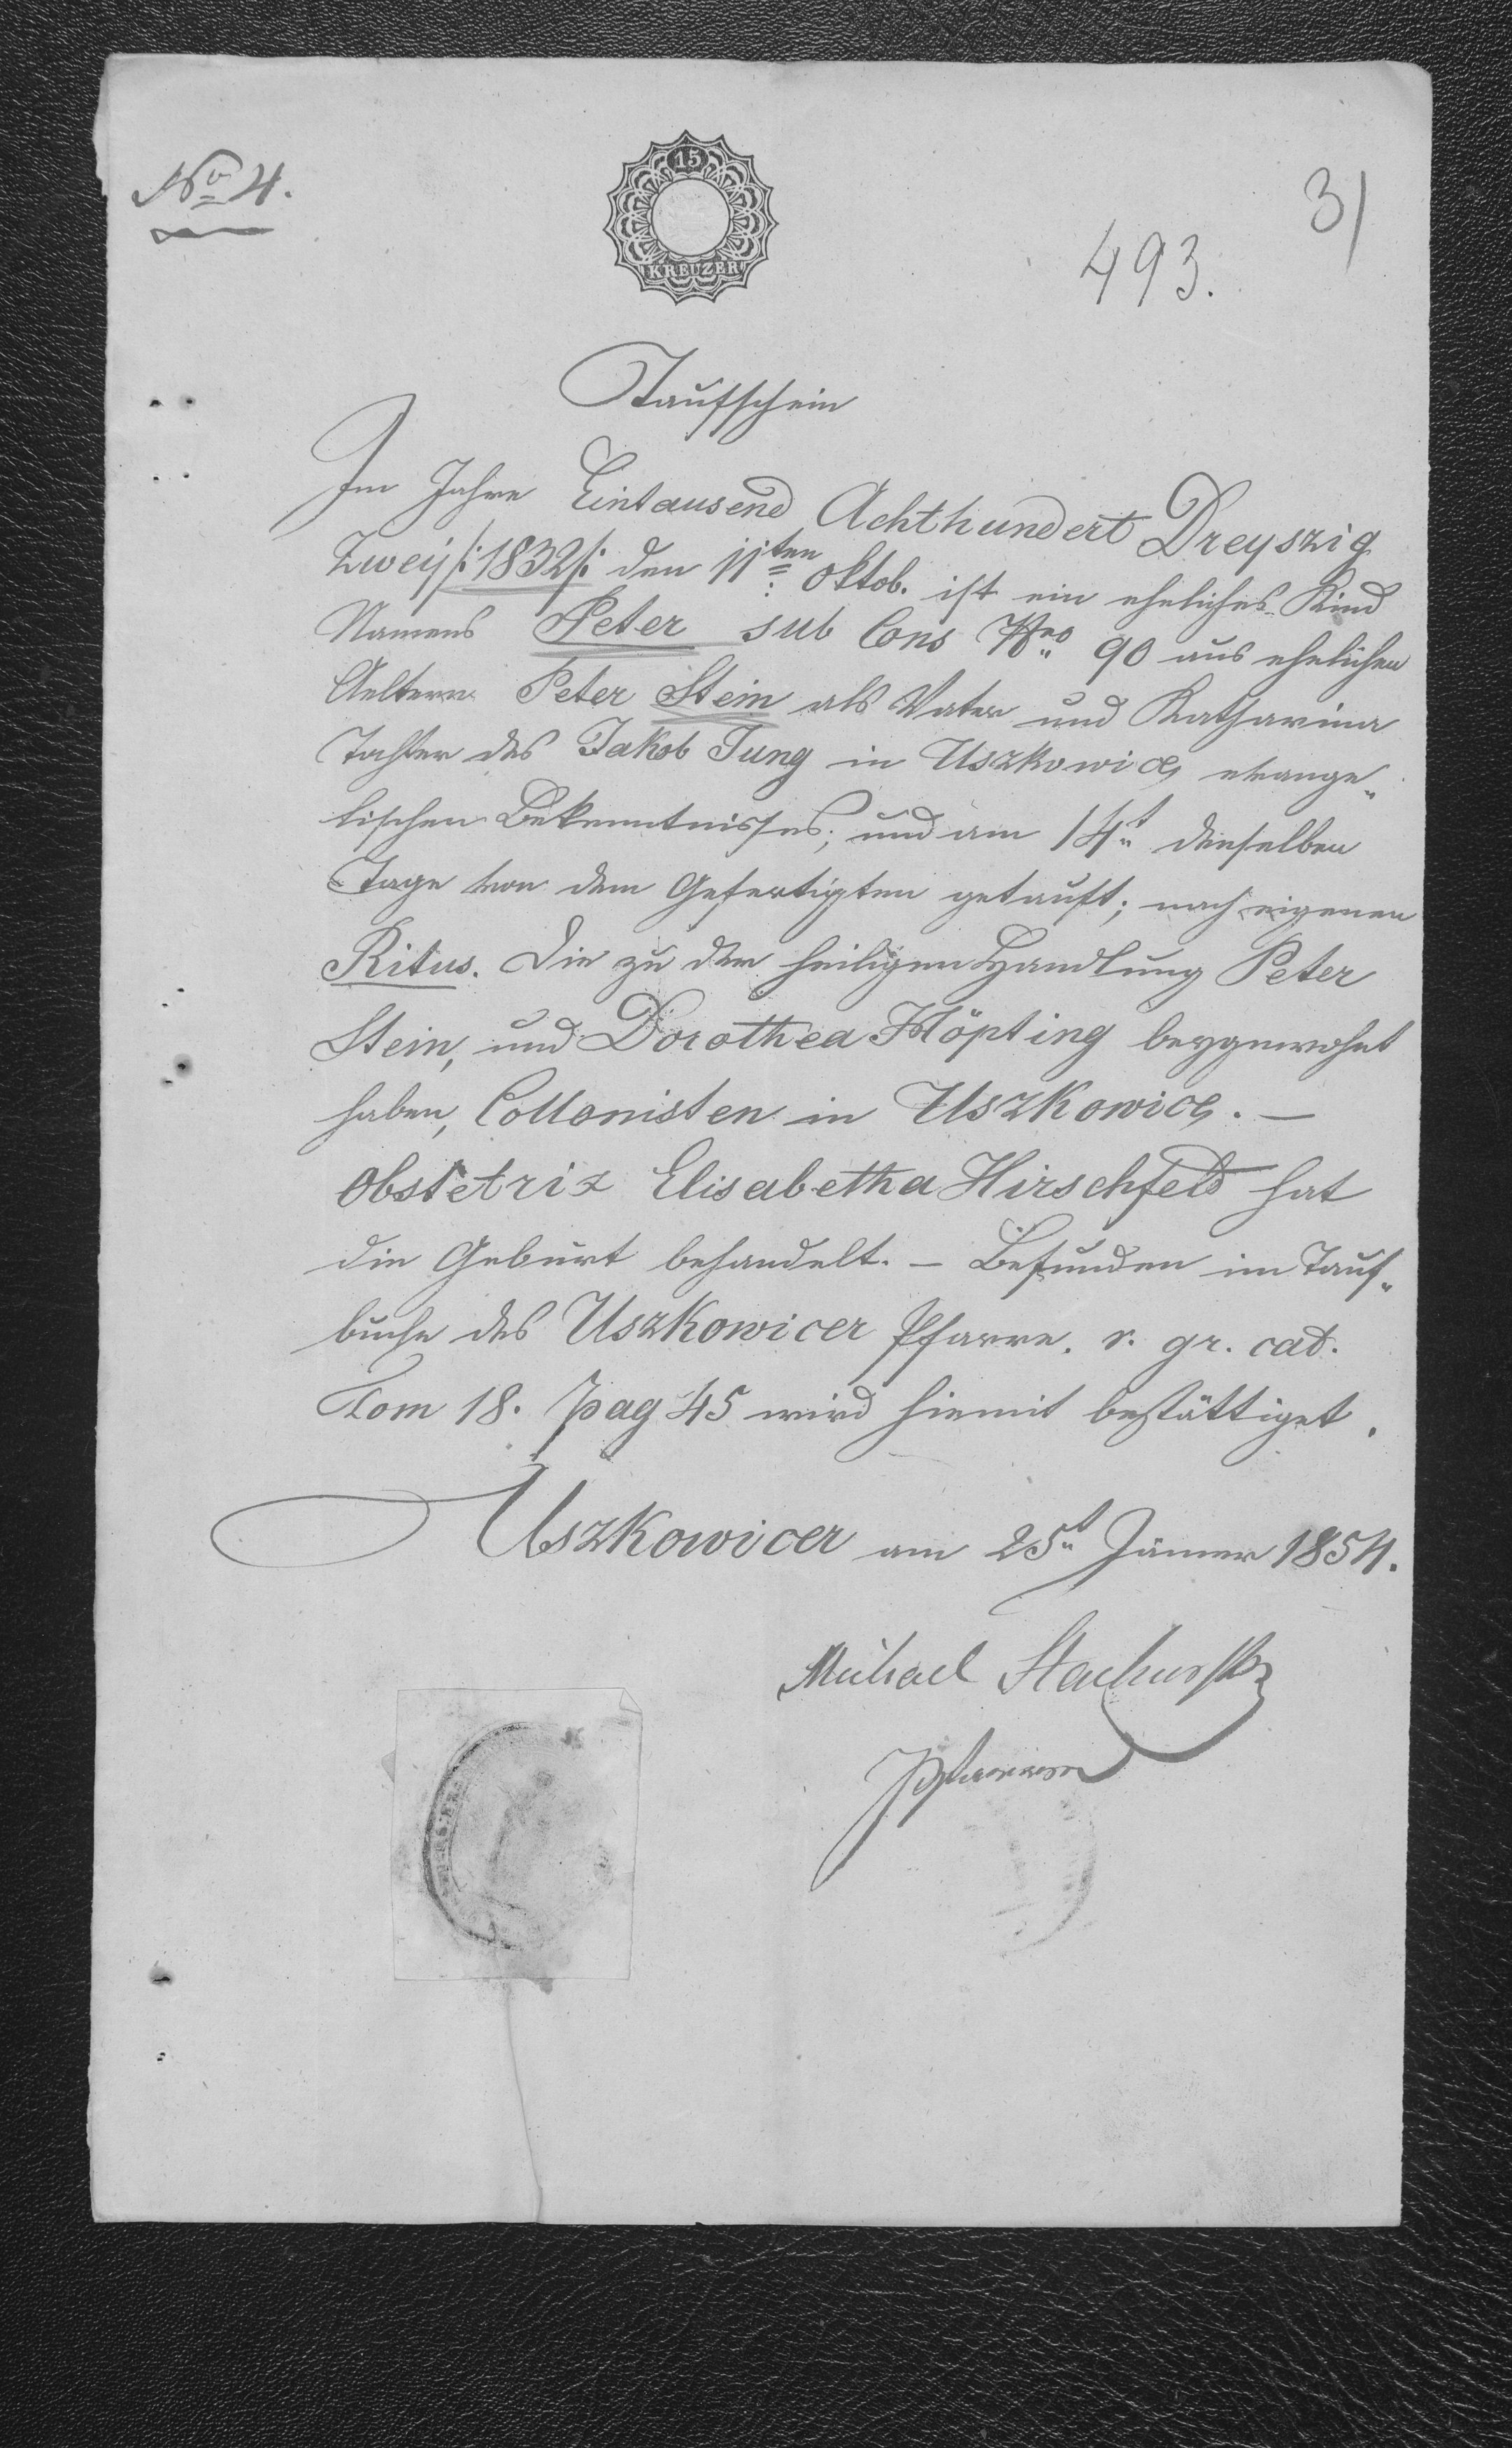 No 4.
15
KREUZER
3/
493.
Taufschein
Im Jahre Eintausend Achthundert Dreyszig
Zwey /: 1832 /: den 11ten Oktob. ist ein eheliches Kind
Namens Peter sub Cons Nro 90 aus ehelichen
Aeltern Peter Stein als Vater und Katharina
Tochter des Jakob Jung in Uszkowice evange„
lischen Bekenntnisses; und am 14t denselben
Tage von dem Gefertigten getauft; nach eigenen
Ritus. Die zu der heiligen Handlung Peter
Stein, und Dorothea Höpting beygewohnt
haben, Collonisten in Uszkowice. —
Obstetrix Elisabetha Hirschfeld hat
die Geburt behandelt. — Befunden im Tauf„
buche des Uszkowicer Pfarre. r. gr. cat.
Tom 18. pag 45 wird hiemit bestättiget.
Uszkowicer am 25t Jänner 1854.
Michael Stachurski
Pfarrer